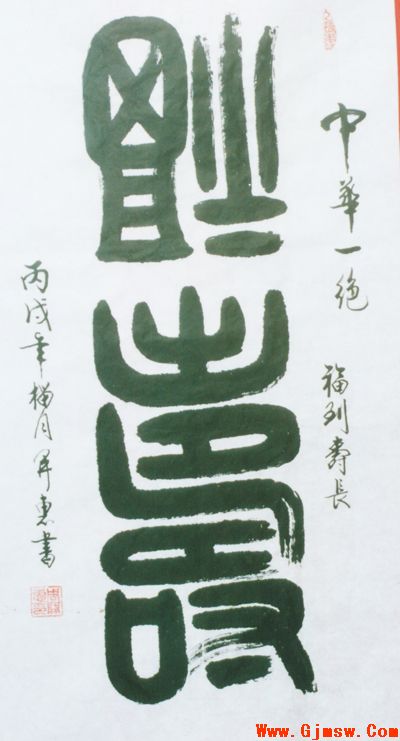 中華一绝 福到壽長
福壽
丙戌年榴月昇惠書
Www.Gjmsw.Com